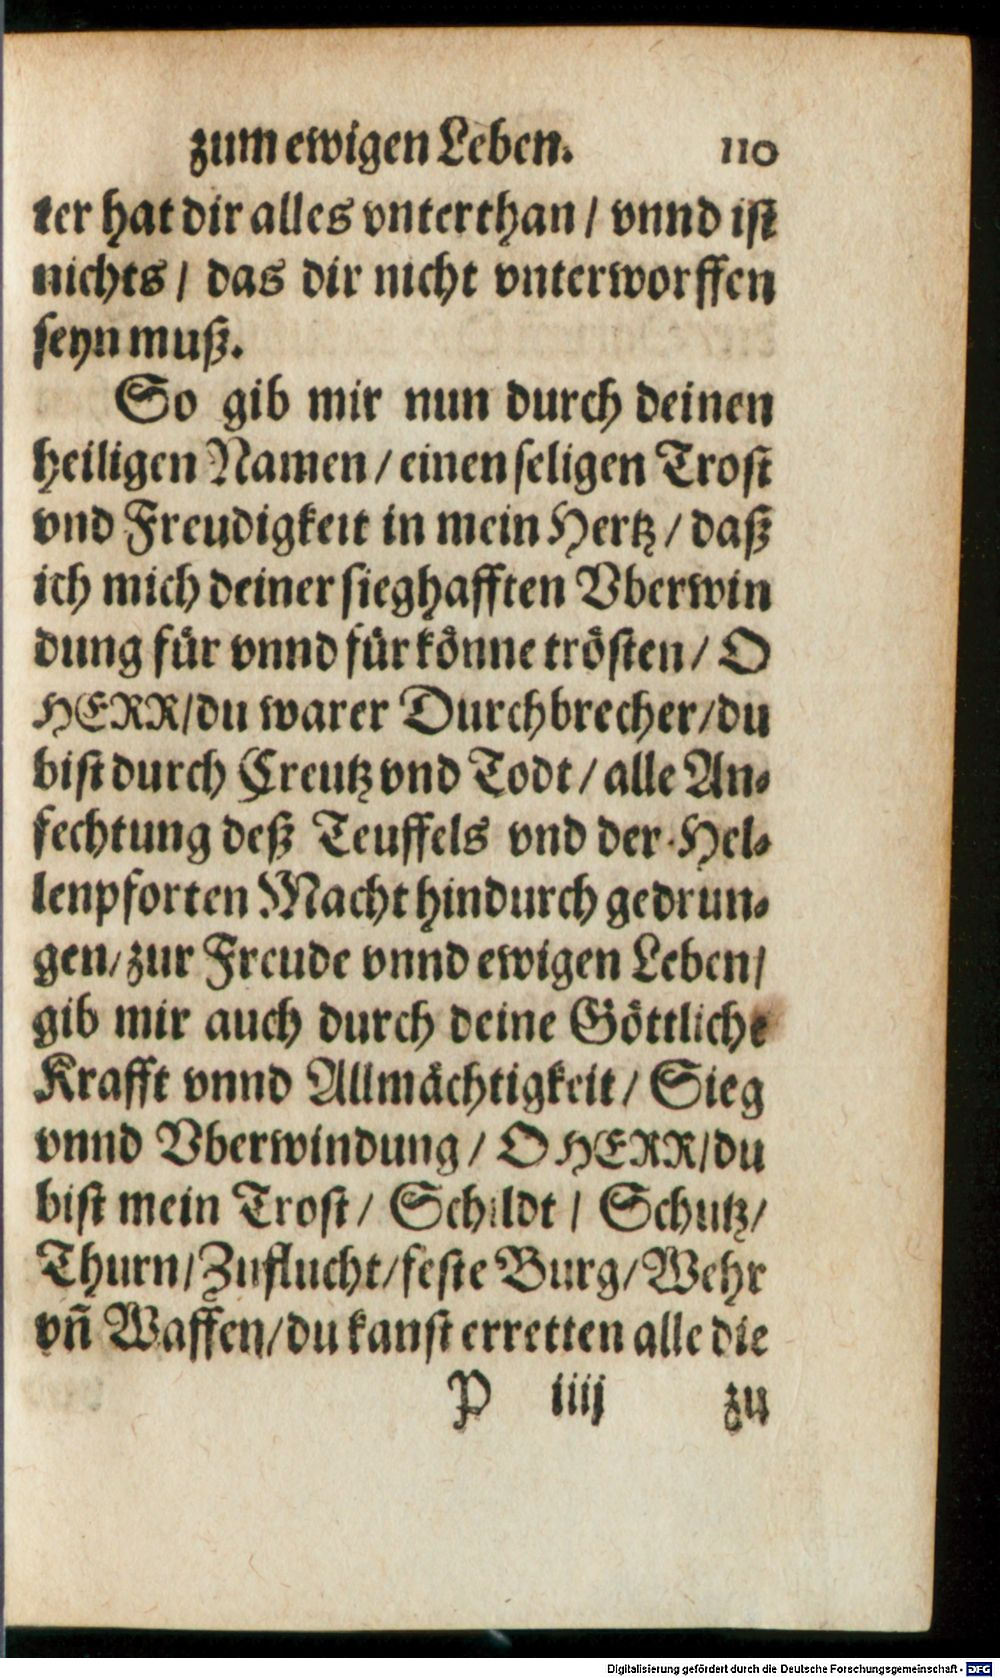 zum ewigen Leben. 110
ter hat dir alles vnterthan / vnnd ist
nichts / das dir nicht vnterworffen
seyn muß.
So gib mir nun durch deinen
heiligen Namen / einen seligen Trost
vnd Freudigkeit in mein Hertz / daß
ich mich deiner sieghafften Vberwin
dung für vnnd für könne trösten / O
HERR / du warer Durchbrecher / du
bist durch Creutz vnd Todt / alle An-
fechtung deß Teuffels vnd der Hel-
lenpforten Macht hindurch gedrun-
gen / zur Freude vnnd ewigen Leben /
gib mir auch durch deine Göttliche
Krafft vnnd Allmächtigkeit / Sieg
vnnd Vberwindung / O HERR / du
bist mein Trost / Schildt / Schutz /
Thurn / Zuflucht / feste Burg / Wehr
vn̄ Waffen / du kanst erretten alle die
P iiij zu
Digitalisierung gefördert durch die Deutsche Forschungsgemeinschaft - DFG